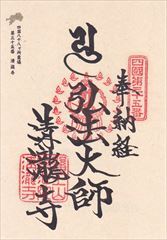 四國第三十五番
奉納経
弘法大師
清瀧寺
四国八十八ヶ所霊場
第三十五番 清瀧寺